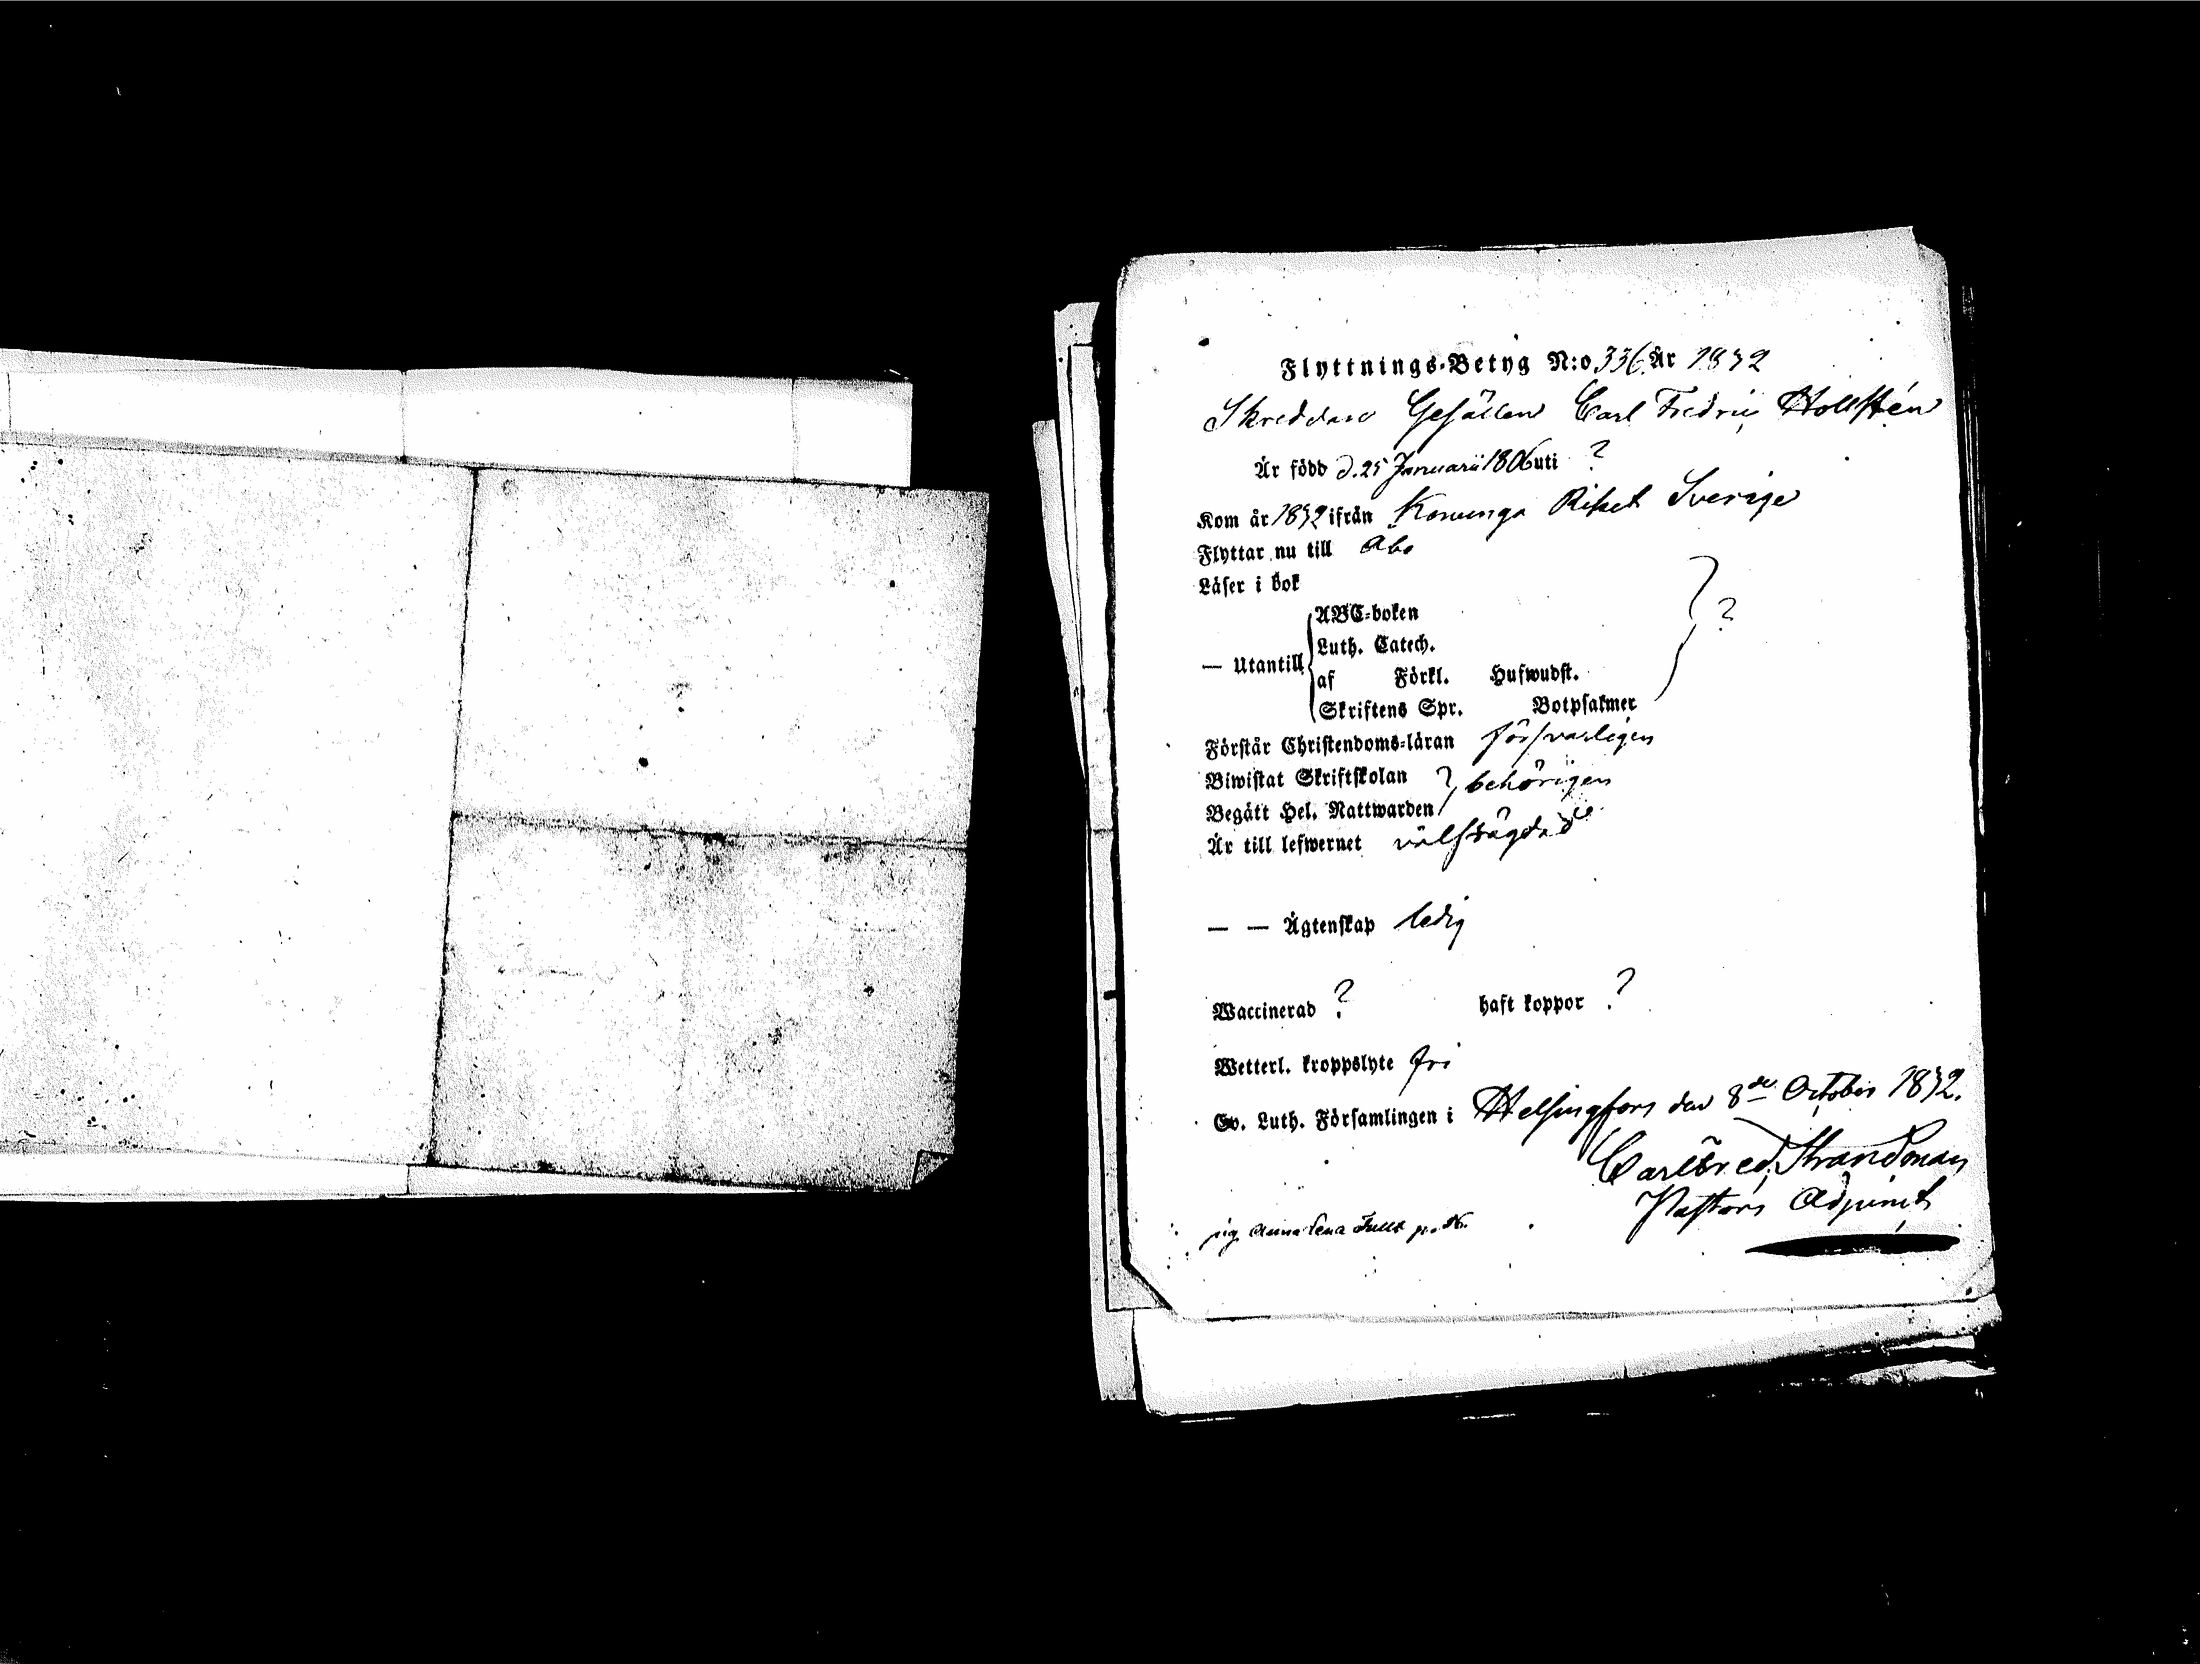 Flyttnings-Betyg N:o 336 År 1832
Skreddare Gesällen Carl Fredric Hollstén
Är född d. 25 Januarii 1806 uti ?
Kom år 1832 ifrån Konunga Riket Sverige
Flyttar nu till Åbo
Läser i bok
ABC-boken
Luth. Catech.
— Utantill af Förkl. Hufwudst. ?
Skriftens Spr. Botpsalmer
Förstår Christendoms-läran försvarligen
Biwistat Skriftskolan
Begått Hel. Nattwarden behörigen
Är till lefwernet välfrägdad
— — Ägtenskap ledig
Waccinerad ? haft koppor ?
Wetterl. kroppslyte fri
Ew. Luth. Församlingen i Helsingfors den 8de Octobris 1832.
Carl Fred. Strandman
Pastors Adjunct
pig. Anna Lena